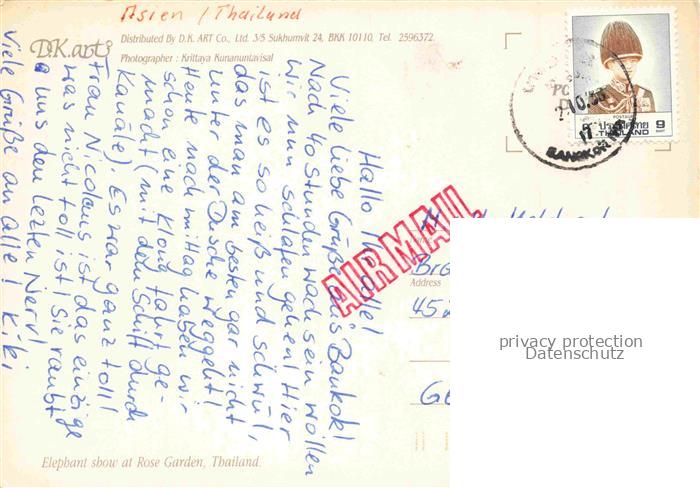 Asien / Thailand
D.K. arts
Distributed By D.K. ART Co., Ltd. 3/5 Sukhumvit 24, BKK 10110, Tel. 2596372.
Photographer : Krittaya Kunanuntavisal
Hallo Ihr alle!
Viele liebe Grüße aus Bankok!
Nach 40 Stunden wach sein wollen
wir nun schlafen gehen! Hier
ist es so heiß und schwül,
das man am besten gar nicht
unter der Dusche weggeht!
Heute nachmittag haben wir
schon eine Klongfahrt ge-
macht (mit dem Schiff durch
Kanäle) Es war ganz toll!
Frau Nicolaus ist das einzige
was nicht toll ist! Sie raubt
uns den lezten Nerv!
Viele Grüße an alle! Kiki
AIRMAIL
Address
45
Ge
POSTAGE
ประเทศไทย
9
THAILAND
BAHT
BANGKOK
privacy protection
Datenschutz
Elephant show at Rose Garden, Thailand.